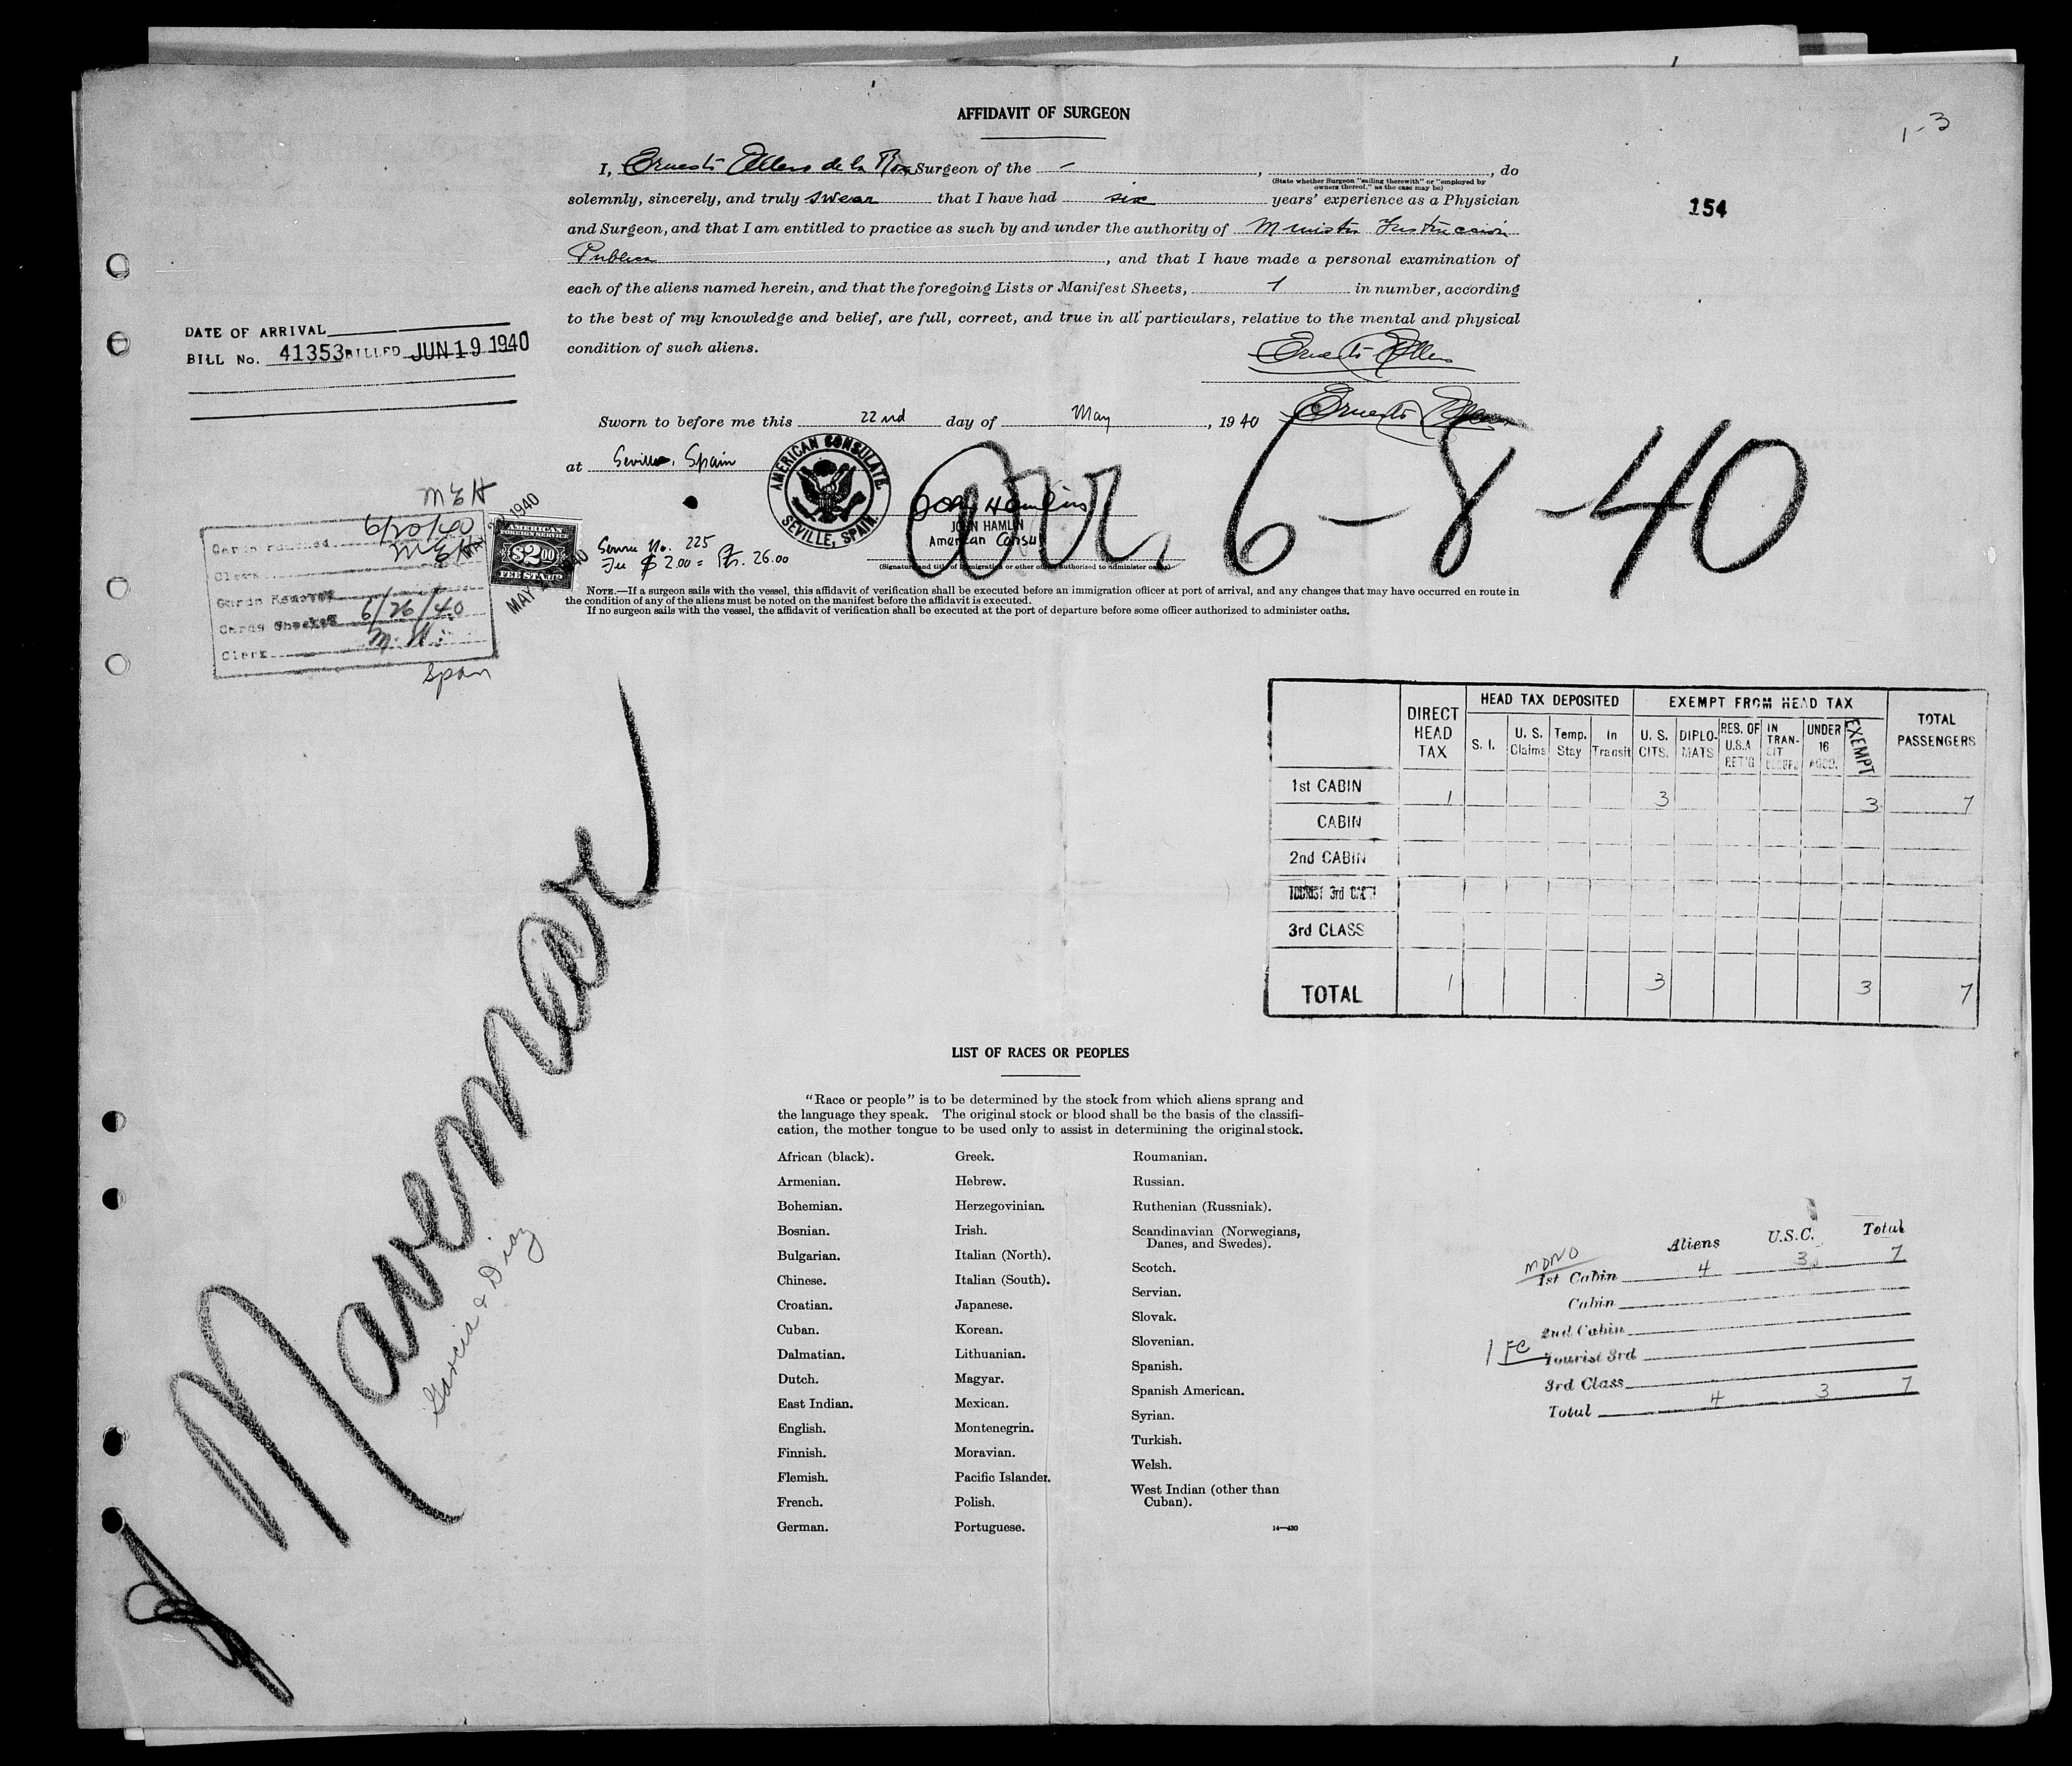 AFFIDAVIT OF SURGEON
1-3
154
I, Ernesto Ellers de la Rosa Surgeon of the -, , do
(State whether Surgeon "sailing therewith" or "employed by
owners thereof," as the case may be)
solemnly, sincerely, and truly swear that I have had six years' experience as a Physician
and Surgeon, and that I am entitled to practice as such by and under the authority of
Publica, and that I have made a personal examination of
each of the aliens named herein, and that the foregoing Lists or Manifest Sheets, 1 in number, according
to the best of my knowledge and belief, are full, correct, and true in all particulars, relative to the mental and physical
condition of such aliens.
DATE OF ARRIVAL
BILL No. 41353 BILLED JUN 19 1940
Sworn to before me this 22nd day of May, 1940
at Seville, Spain
AMERICAN CONSULATE
SEVILLE, SPAIN.
John Hamlin
JOHN HAMLIN
American Consul
(Signature and title of immigration or other officer authorized to administer oaths)
Arr. 6-8-40
Service No. 225
Fee $2.00 = 26.00
AMERICAN
FOREIGN SERVICE
$2.00
FEE STAMP
MAY 1940
MEH
6/20/40
MEH
Clerk
Cards Checked 6/26/40
M. H.
Clerk
Span
NOTE.—If a surgeon sails with the vessel, this affidavit of verification shall be executed before an immigration officer at port of arrival, and any changes that may have occurred en route in
the condition of any of the aliens must be noted on the manifest before the affidavit is executed.
If no surgeon sails with the vessel, the affidavit of verification shall be executed at the port of departure before some officer authorized to administer oaths.
DIRECT HEAD TAX
HEAD TAX DEPOSITED
EXEMPT FROM HEAD TAX
TOTAL PASSENGERS
S. I.
U. S. Claims
Temp. Stay
In Transit
U. S. CITS.
DIPLOMATS
RES. OF U.S.A RET'G
IN TRANSIT
UNDER 16
EXEMPT
1st CABIN 1 3 3 7
CABIN
2nd CABIN
TOURIST 3rd
3rd CLASS
TOTAL 1 3 3 7
Navemar
Garcia & Diaz
LIST OF RACES OR PEOPLES
"Race or people" is to be determined by the stock from which aliens sprang and
the language they speak. The original stock or blood shall be the basis of the classifi-
cation, the mother tongue to be used only to assist in determining the original stock.
African (black).
Armenian.
Bohemian.
Bosnian.
Bulgarian.
Chinese.
Croatian.
Cuban.
Dalmatian.
Dutch.
East Indian.
English.
Finnish.
Flemish.
French.
German.
Greek.
Hebrew.
Herzegovinian.
Irish.
Italian (North).
Italian (South).
Japanese.
Korean.
Lithuanian.
Magyar.
Mexican.
Montenegrin.
Moravian.
Pacific Islander.
Polish.
Portuguese.
Roumanian.
Russian.
Ruthenian (Russniak).
Scandinavian (Norwegians,
Danes, and Swedes).
Scotch.
Servian.
Slovak.
Slovenian.
Spanish.
Spanish American.
Syrian.
Turkish.
Welsh.
West Indian (other than
Cuban).
14—430
Aliens U.S.C. Total
MDNO
1st Cabin 4 3 7
Cabin
2nd Cabin
1 FC
Tourist 3rd
3rd Class
Total 4 3 7